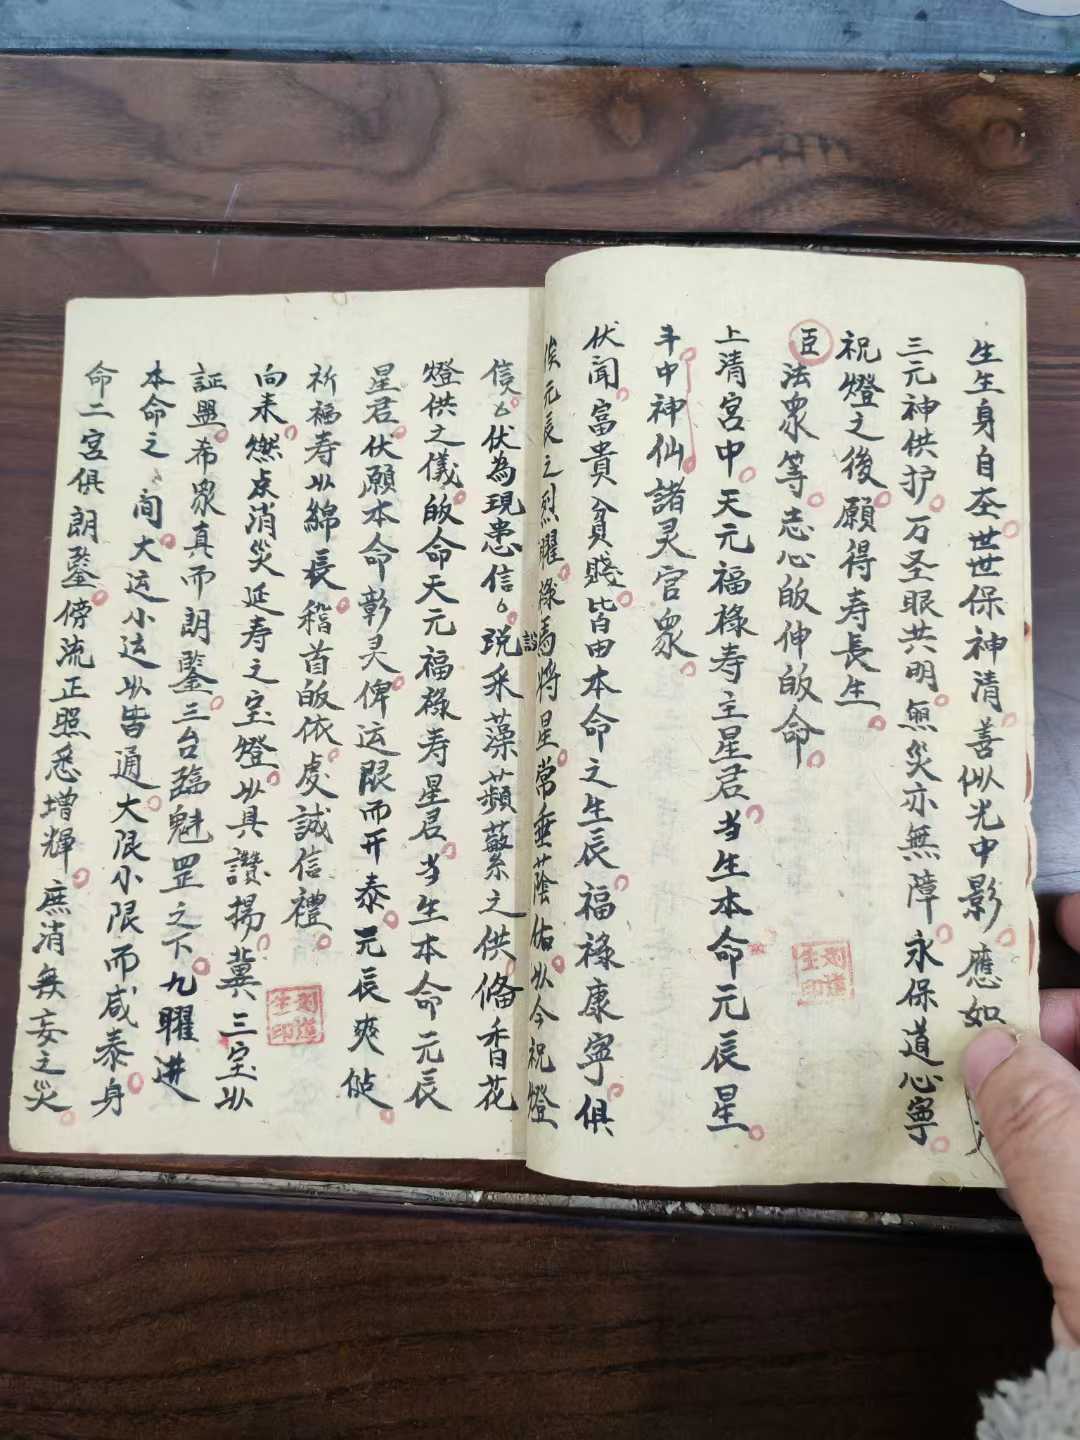 生生身自在世世保神清善似光中影應如
三元神供护万圣眼共明無災亦無障永保道心寧
祝燈之後願得寿長生
臣法衆等志心皈伸皈命
上清宮中天元福祿寿主星君当生本命元辰星
斗中神仙諸灵官衆
伏聞富貴貧賤皆由本命之生辰福祿康寧俱
俟元辰之烈耀祿馬将星常垂蔭佑以今祝燈
信伏為現患信説采藻蘋蘩之供俻香花
燈供之儀皈命天元福祿寿星君当生本命元辰
星君伏願本命彰灵俾运限而开泰元辰爽
祈福寿以綿長稽首皈依虔誠信禮
向来燃点消災延寿之宝燈以具讚揚冀三宝以
証盟希衆真而朗鑒三台臨魁罡之下九曜进
本命之間大运小运以皆通大限小限而咸泰身
命二宮俱朗鑒傍流正照悉增輝庶消無妄之災